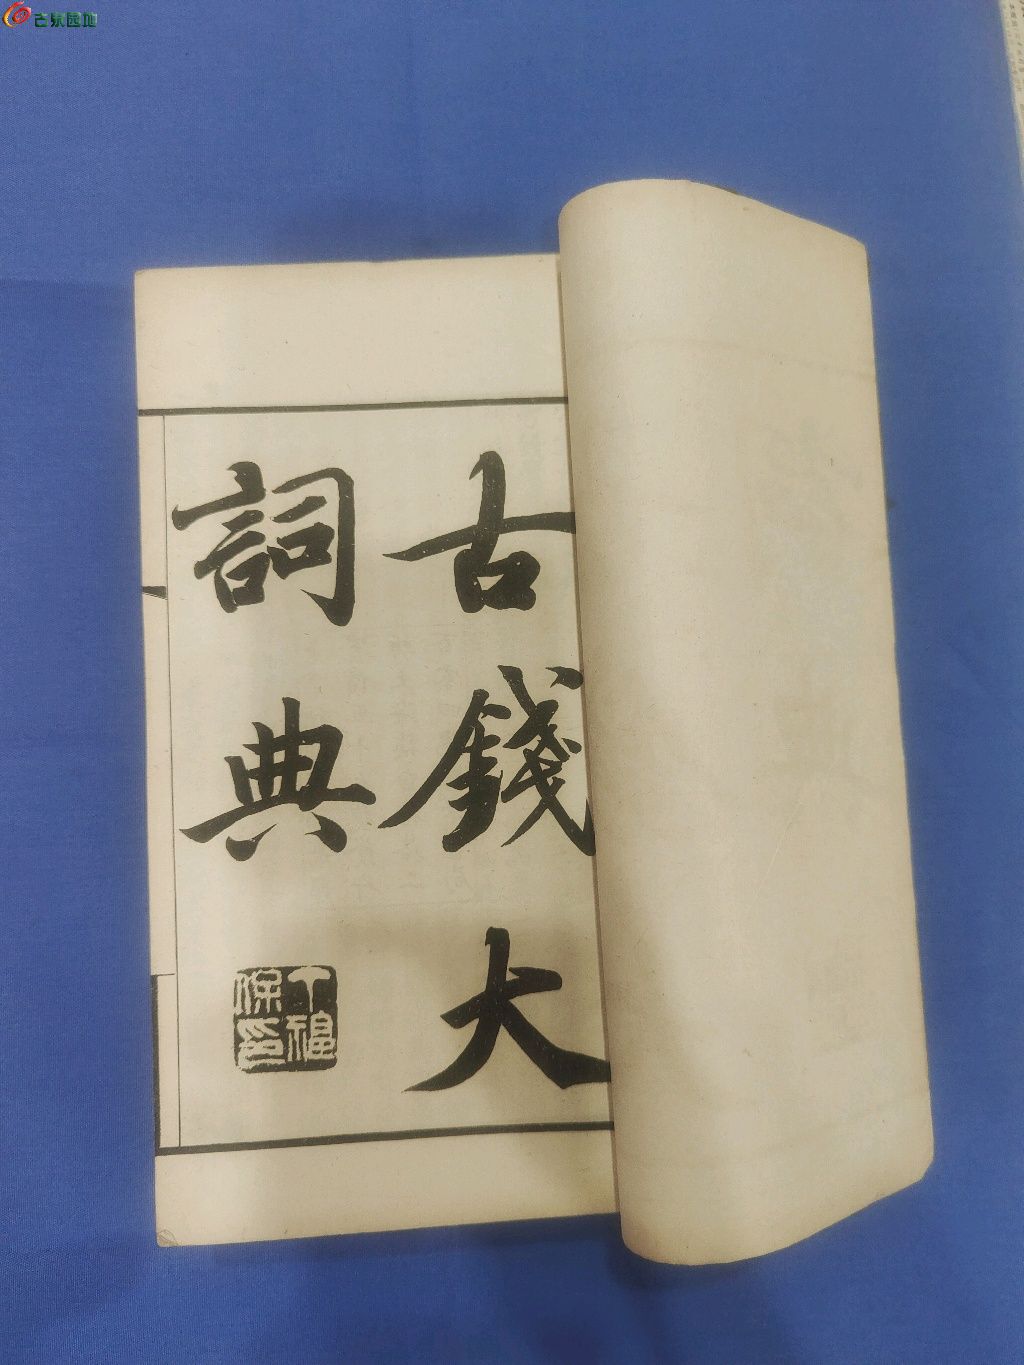 古泉园地
古錢大
詞典
丁福
保印